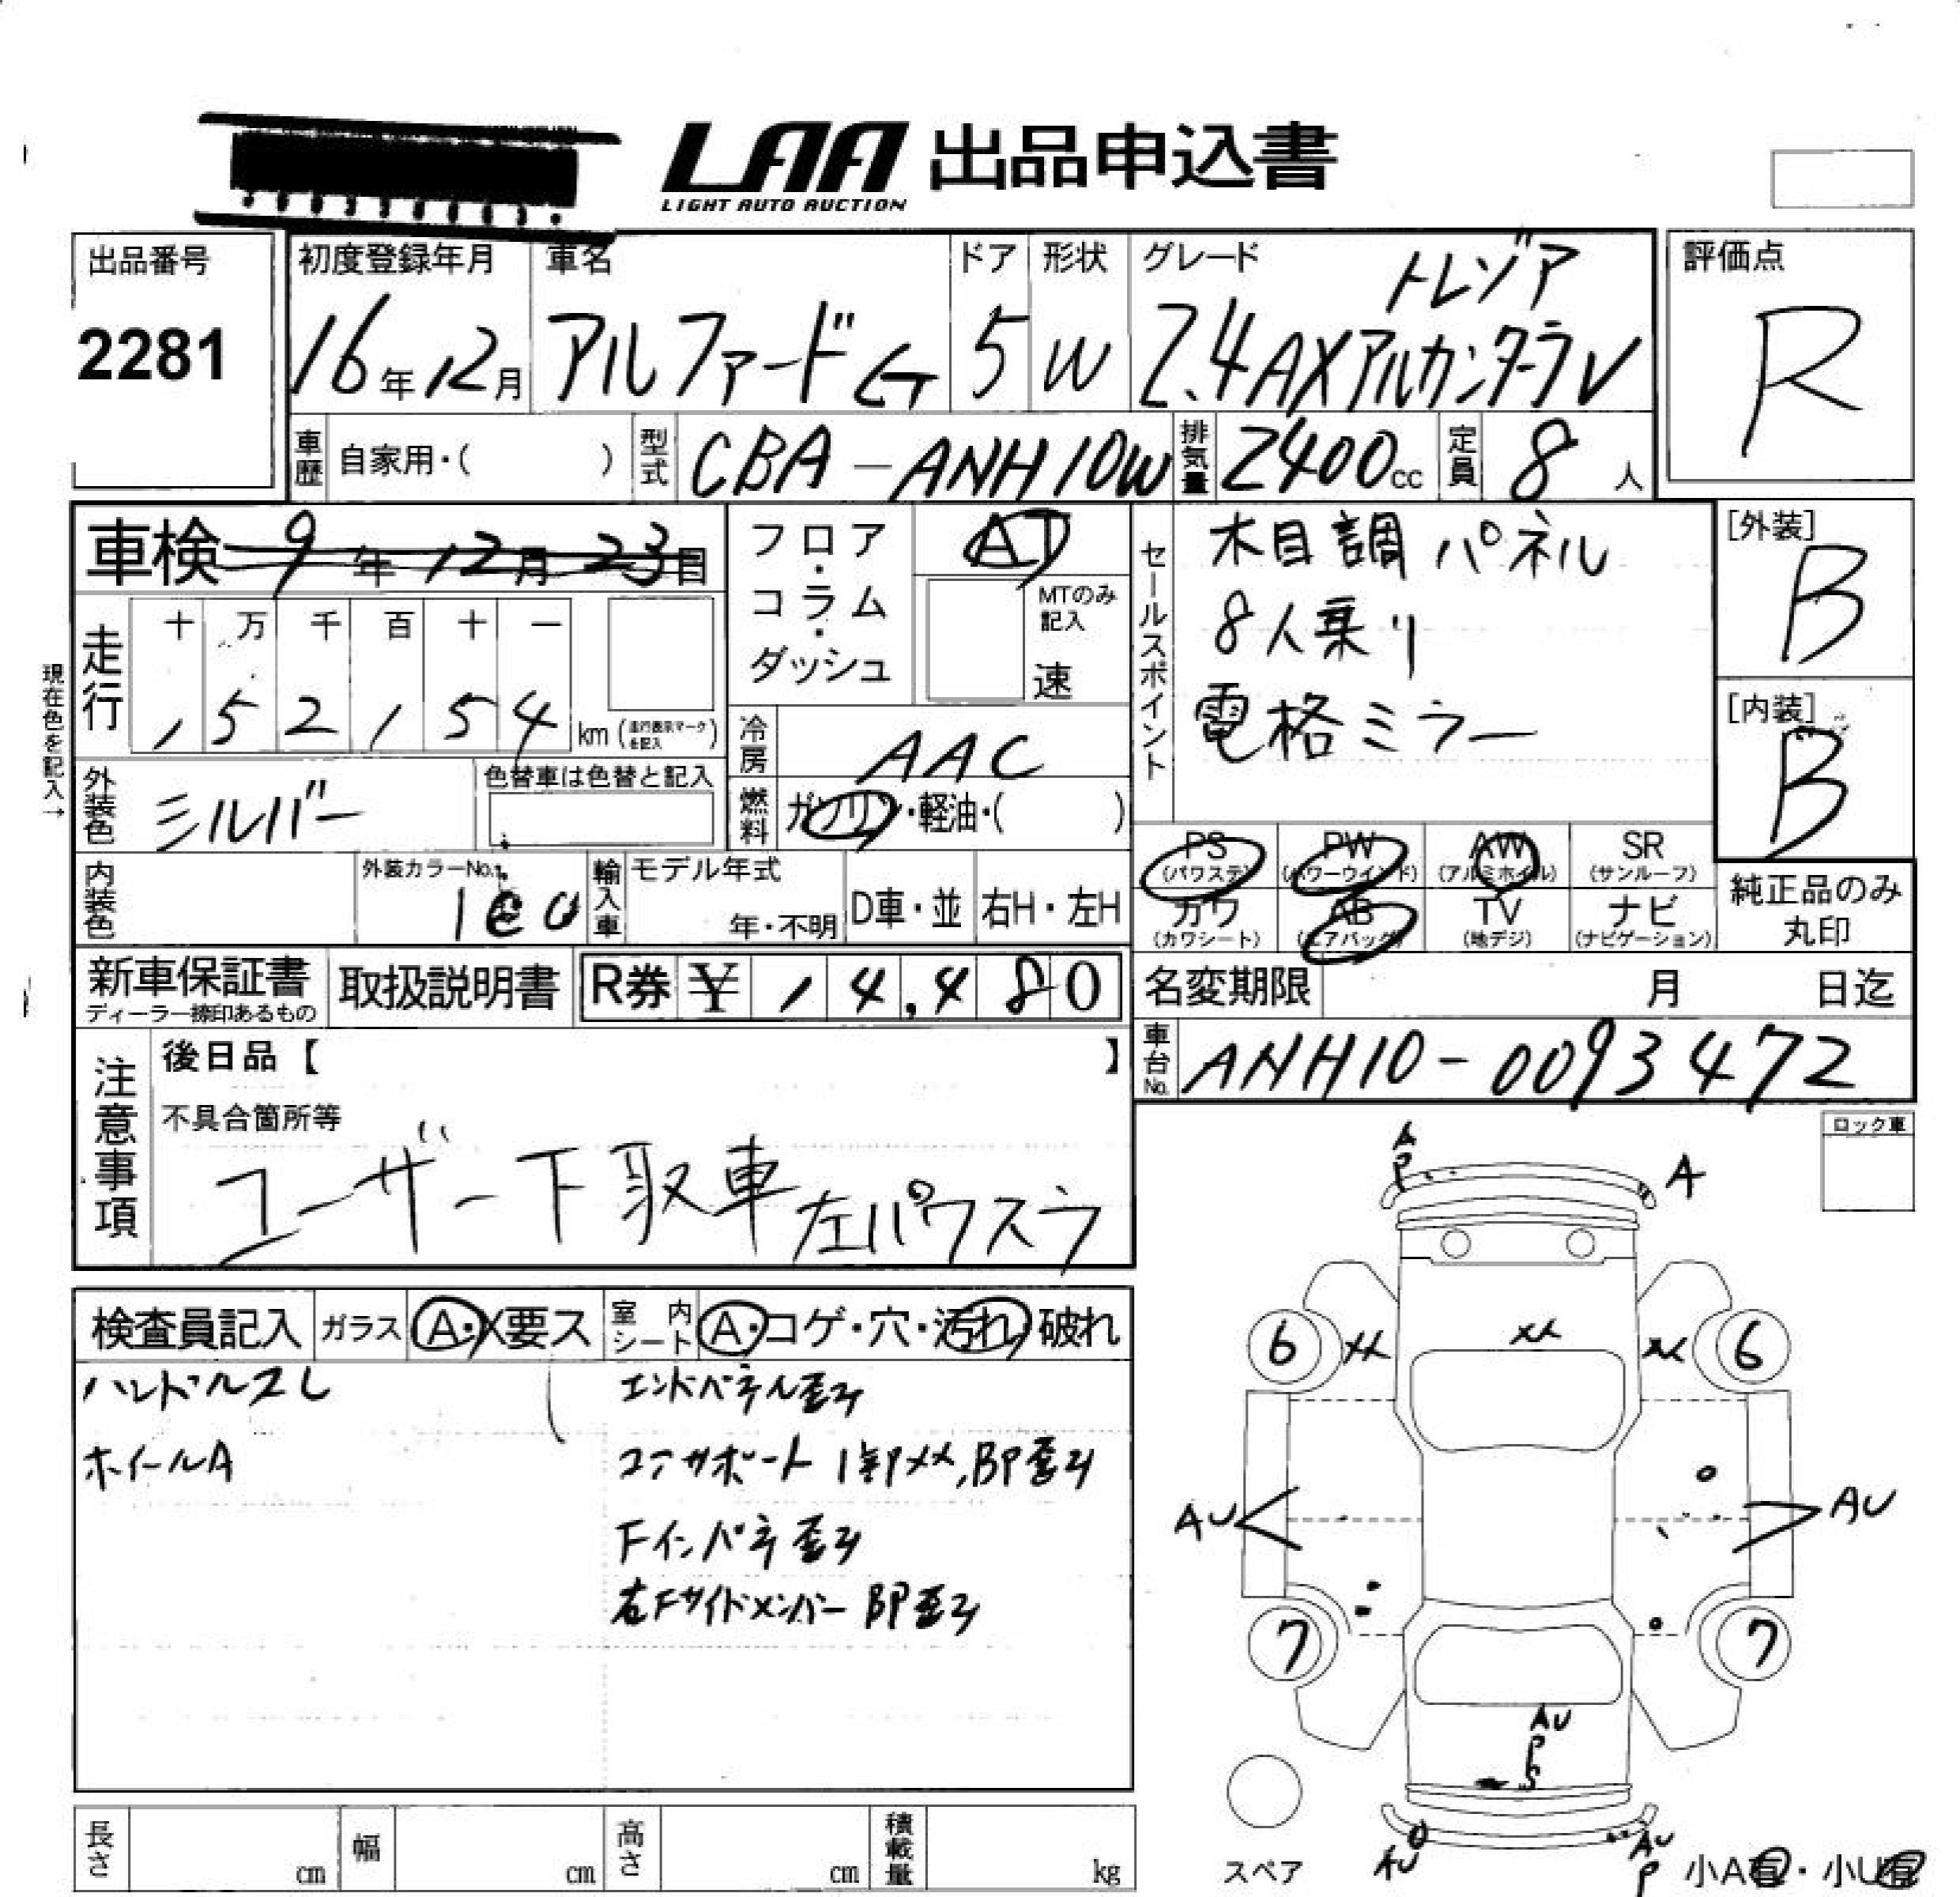 LAA 出品申込書
LIGHT AUTO AUCTION
出品番号
2281
初度登録年月 車名 ドア 形状 グレード
16年12月 アルファードG 5 W 2.4AXアルカンターラV
トレゾア
評価点
R
車歴 自家用・( ) 型式 CBA-ANH10W 排気量 2400cc 定員 8人
車検 9年12月23日
フロア・コラム・ダッシュ
AT
MTのみ記入
速
走行 十 万 千 百 十 一
152,154 km (走行表示マークを記入)
現在色を記入→
外装色 シルバー 色替車は色替と記入
冷房 AAC
燃料 ガソリン・軽油・( )
セールスポイント
木目調パネル
8人乗り
電格ミラー
[外装]
B
[内装]
B
PS (パワステ) PW (パワーウインド) AW (アルミホイル) SR (サンルーフ)
カワ (カワシート) AB (エアバッグ) TV (地デジ) ナビ (ナビゲーション)
純正品のみ丸印
内装色 外装カラーNo. 1E0 輸入車 モデル年式 年・不明 D車・並 右H・左H
新車保証書 ディーラー捺印あるもの 取扱説明書 R券 ¥ 14,480
名変期限 月 日迄
車台No. ANH10-0093472
注意事項
後日品【 】
不具合箇所等
ユーザー下取車 左パワスラ
ロック車
検査員記入 ガラス A・X要ス 室内シート A・コゲ・穴・汚れ 破れ
ハンドルスレ エンドパネル歪み
ホイールA コアサポート 1部XX,BP歪み
Fインパネ歪み
右Fサイドメンバー BP歪み
A
P
A
6 XX XX XX 6
AU AU
7 7
AU
P
S
AU
AU
P
スペア
小A有・小U有
長さ cm 幅 cm 高さ cm 積載量 kg